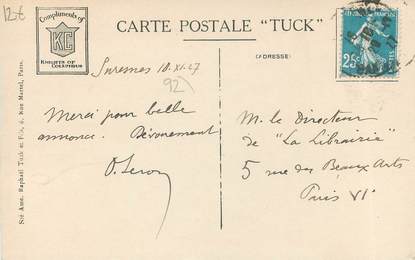 12€
Compliments of
KC
KNIGHTS OF
COLUMBUS
CARTE POSTALE "TUCK"
(ADRESSE)
25c
POSTES
Sté Ame. Raphael Tuck et Fils, 6, Rue Martel, Paris.
Suresnes 10.XI.27
92
Merci pour belle
annonce. Dévouement
O. Leroy
M. le Directeur
de "La Librairie"
5 rue des Beaux Arts
Paris VI